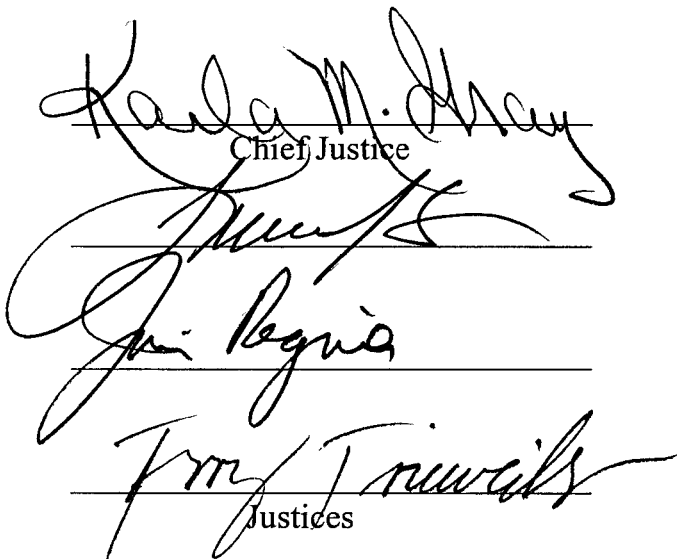 Karla M. Gray
Chief Justice
Jim Regnier
Terry Trieweiler
Justices